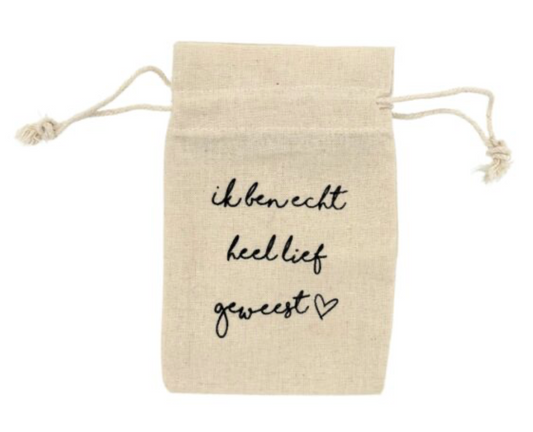 ik ben echt
heel lief
geweest ♡